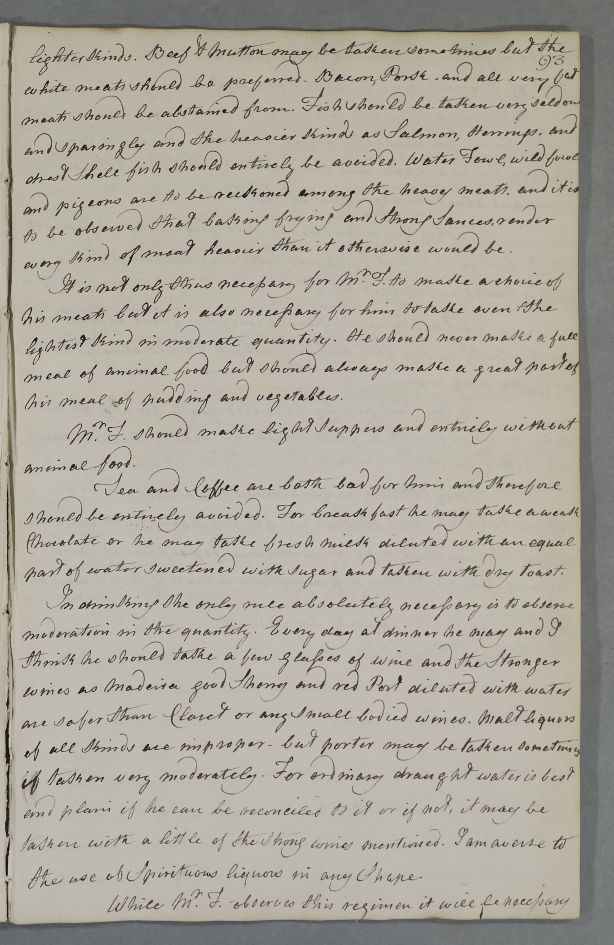 93
lighter kinds. Beef & Mutton may be taken sometimes but the
white meats should be preferred. Bacon, Pork. and all very fat
meats should be abstained from. Fish should be taken very seldom
and sparingly and the heavier kinds as Salmon, Herrings. and
drest shell fish should entirely be avoided. Water Fowl, wild fowl
and pigeons are to be reckoned among the heavy meats. and it is
to be observed that baking frying and strong Sauces, render
every kind of meat heavier than it otherwise would be.
It is not only thus necessary for Mr. F. to make a choice of
his meats but it is also necessary for him to take even the
lightest kind in moderate quantity. He should never make a full
meal of animal food but should always make a great part of
his meal of pudding and vegetables.
Mr. F. should make light suppers and entirely without
animal food.
Tea and Coffee are both bad for him and therefore
should be entirely avoided. For breakfast he may take a weak
Chocolate or he may take fresh milk diluted with an equal
part of water sweetened with sugar and taken with dry toast.
In drinking the only rule absolutely necessary is to observe
moderation in the quantity. Every day at dinner he may and I
think he should take a few glasses of wine and the stronger
wines as Madeira good Sherry and red Port diluted with water
are safer than Claret or any small bodied wines. Malt liquors
of all kinds are improper - but porter may be taken sometimes
if taken very moderately. For ordinary draught water is best
and plain if he can be reconciled to it or if not, it may be
taken with a little of the strong wines mentioned. I am averse to
the use of Spirituous liquors in any Shape.
While Mr. F. observes this regimen it will be necessary